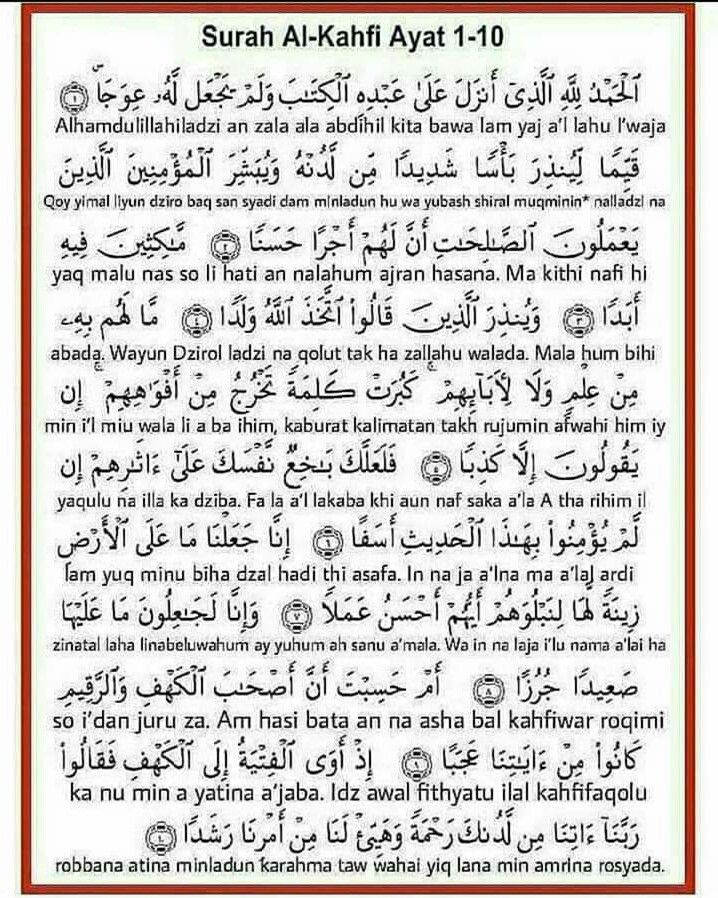 Surah Al-Kahfi Ayat 1-10
ٱلْحَمْدُ لِلَّهِ ٱلَّذِىٓ أَنزَلَ عَلَىٰ عَبْدِهِ ٱلْكِتَٰبَ وَلَمْ يَجْعَل لَّهُۥ عِوَجَاۜ ١
Alhamdulillahiladzi an zala ala abdihil kita bawa lam yaj a'l lahu I'waja
قَيِّمًا لِّيُنذِرَ بَأْسًا شَدِيدًا مِّن لَّدُنْهُ وَيُبَشِّرَ ٱلْمُؤْمِنِينَ ٱلَّذِينَ
Qoy yimal liyun dziro baq san syadi dam minladun hu wa yubash shiral muqminin* nalladzi na
يَعْمَلُونَ ٱلصَّٰلِحَٰتِ أَنَّ لَهُمْ أَجْرًا حَسَنًا ٢ مَّٰكِثِينَ فِيهِ
yaq malu nas so li hati an nalahum ajran hasana. Ma kithi nafi hi
أَبَدًا ٣ وَيُنذِرَ ٱلَّذِينَ قَالُوا۟ ٱتَّخَذَ ٱللَّهُ وَلَدًا ٤ مَّا لَهُم بِهِۦ
abada. Wayun Dzirol ladzi na qolut tak ha zallahu walada. Mala hum bihi
مِنْ عِلْمٍ وَلَا لِءَابَآئِهِمْ ۚ كَبُرَتْ كَلِمَةً تَخْرُجُ مِنْ أَفْوَٰهِهِمْ ۚ إِن
min i'l miu wala li a ba ihim, kaburat kalimatan takh rujumin afwahi him iy
يَقُولُونَ إِلَّا كَذِبًا ٥ فَلَعَلَّكَ بَٰخِعٌ نَّفْسَكَ عَلَىٰٓ ءَاثَٰرِهِمْ إِن
yaqulu na illa ka dziba. Fa la a'l lakaba khi aun naf saka a'la A tha rihim il
لَّمْ يُؤْمِنُوا۟ بِهَٰذَا ٱلْحَدِيثِ أَسَفًا ٦ إِنَّا جَعَلْنَا مَا عَلَى ٱلْأَرْضِ
lam yuq minu biha dzal hadi thi asafa. In na ja a'lna ma a'lal ardi
زِينَةً لَّهَا لِنَبْلُوَهُمْ أَيُّهُمْ أَحْسَنُ عَمَلًا ٧ وَإِنَّا لَجَٰعِلُونَ مَا عَلَيْهَا
zinatal laha linabeluwahum ay yuhum ah sanu a'mala. Wa in na laja i'lu nama a'lai ha
صَعِيدًا جُرُزًا ٨ أَمْ حَسِبْتَ أَنَّ أَصْحَٰبَ ٱلْكَهْفِ وَٱلرَّقِيمِ
so i'dan juru za. Am hasi bata an na asha bal kahfiwar roqimi
كَانُوا۟ مِنْ ءَايَٰتِنَا عَجَبًا ٩ إِذْ أَوَى ٱلْفِتْيَةُ إِلَى ٱلْكَهْفِ فَقَالُوا۟
ka nu min a yatina a'jaba. Idz awal fithyatu ilal kahfifaqolu
رَبَّنَآ ءَاتِنَا مِن لَّدُنكَ رَحْمَةً وَهَيِّئْ لَنَا مِنْ أَمْرِنَا رَشَدًا ١٠
robbana atina minladun karahma taw wahai yiq lana min amrina rosyada.